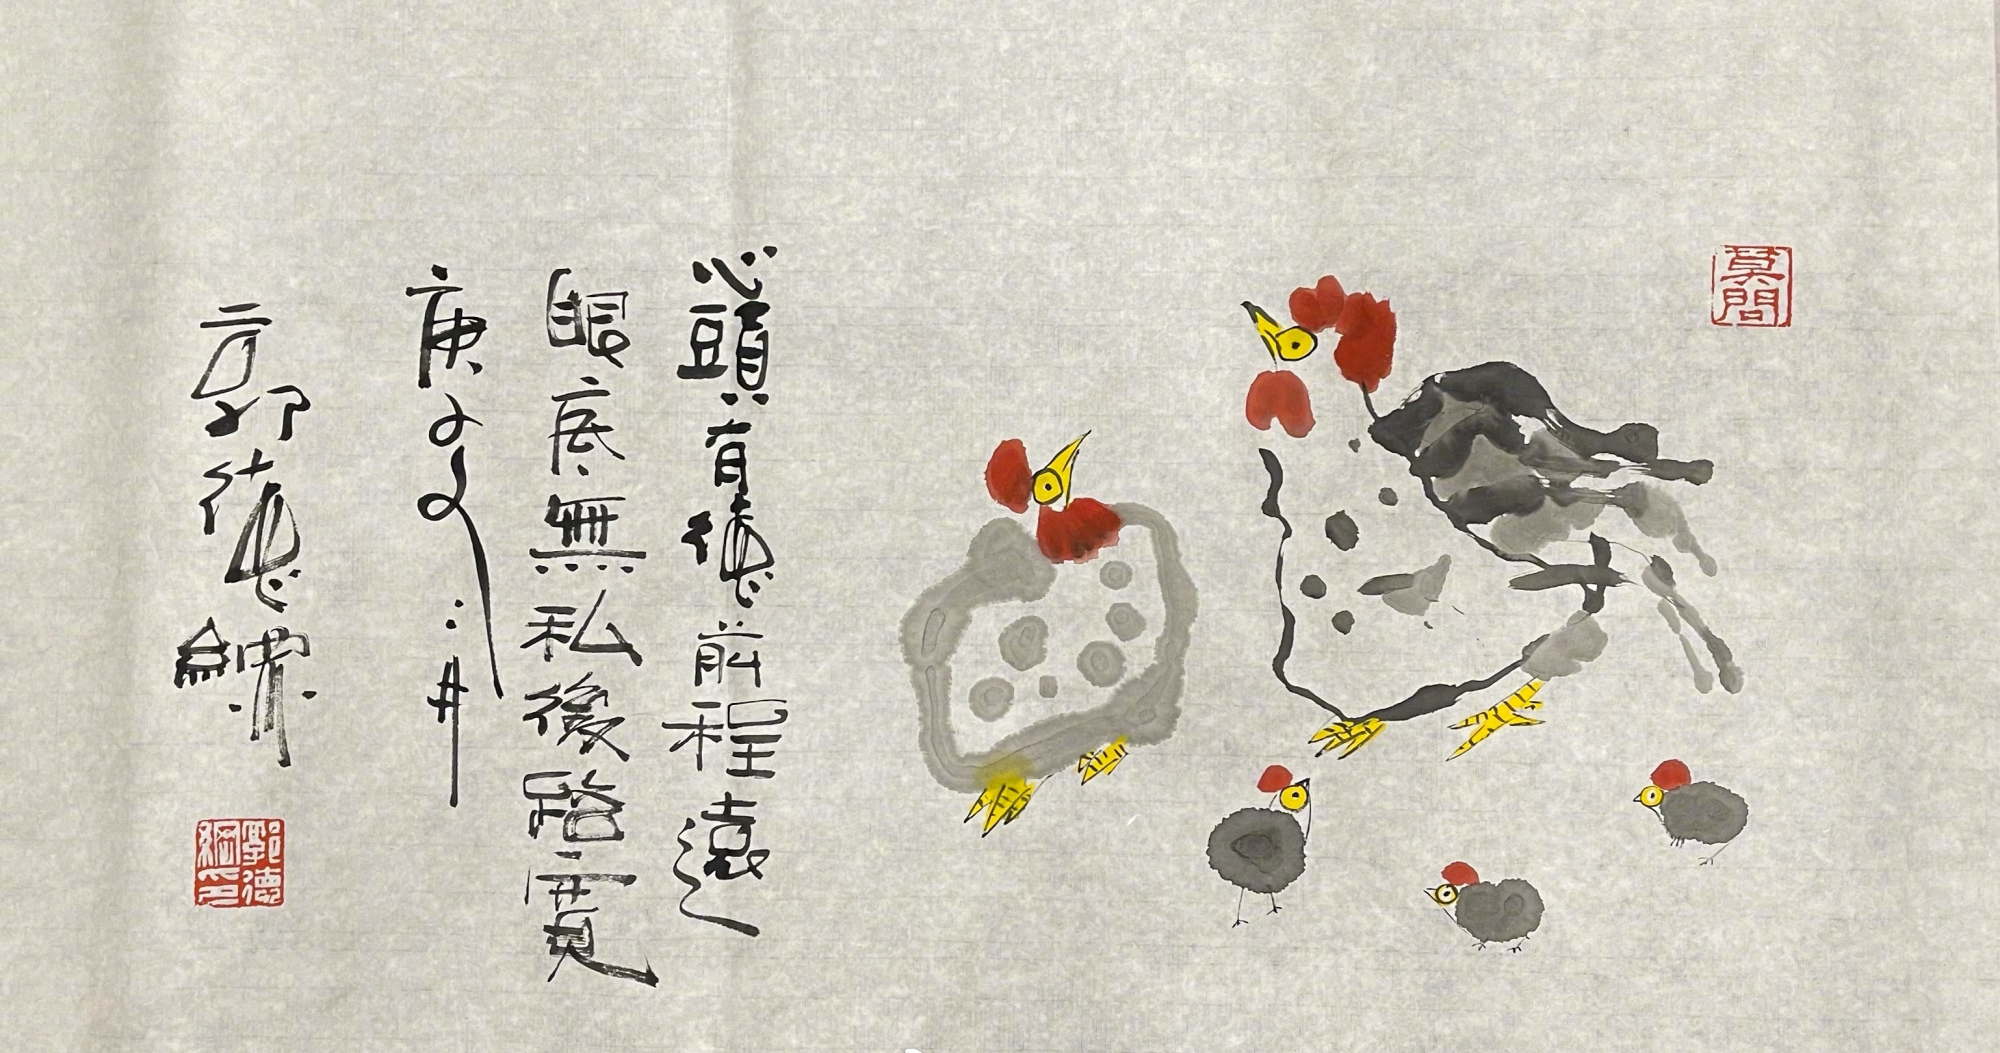 莫問
心頭有德前程遠
眼底無私後路寬
庚子冬
郭德綱
郭德綱印